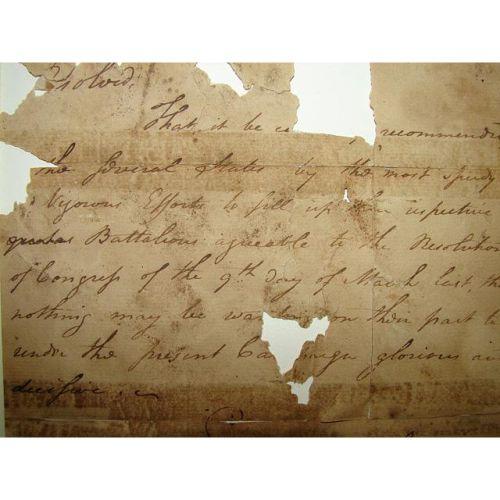 esolved,
That it be recommended
the several States by the most speedy
Vigorous Efforts to fill up their respective
quotas Battalions agreeable to the Resolution
of Congress of the 9th day of March last, tha
nothing may be wanting on their part to
render the present Campaign glorious an
decisive,